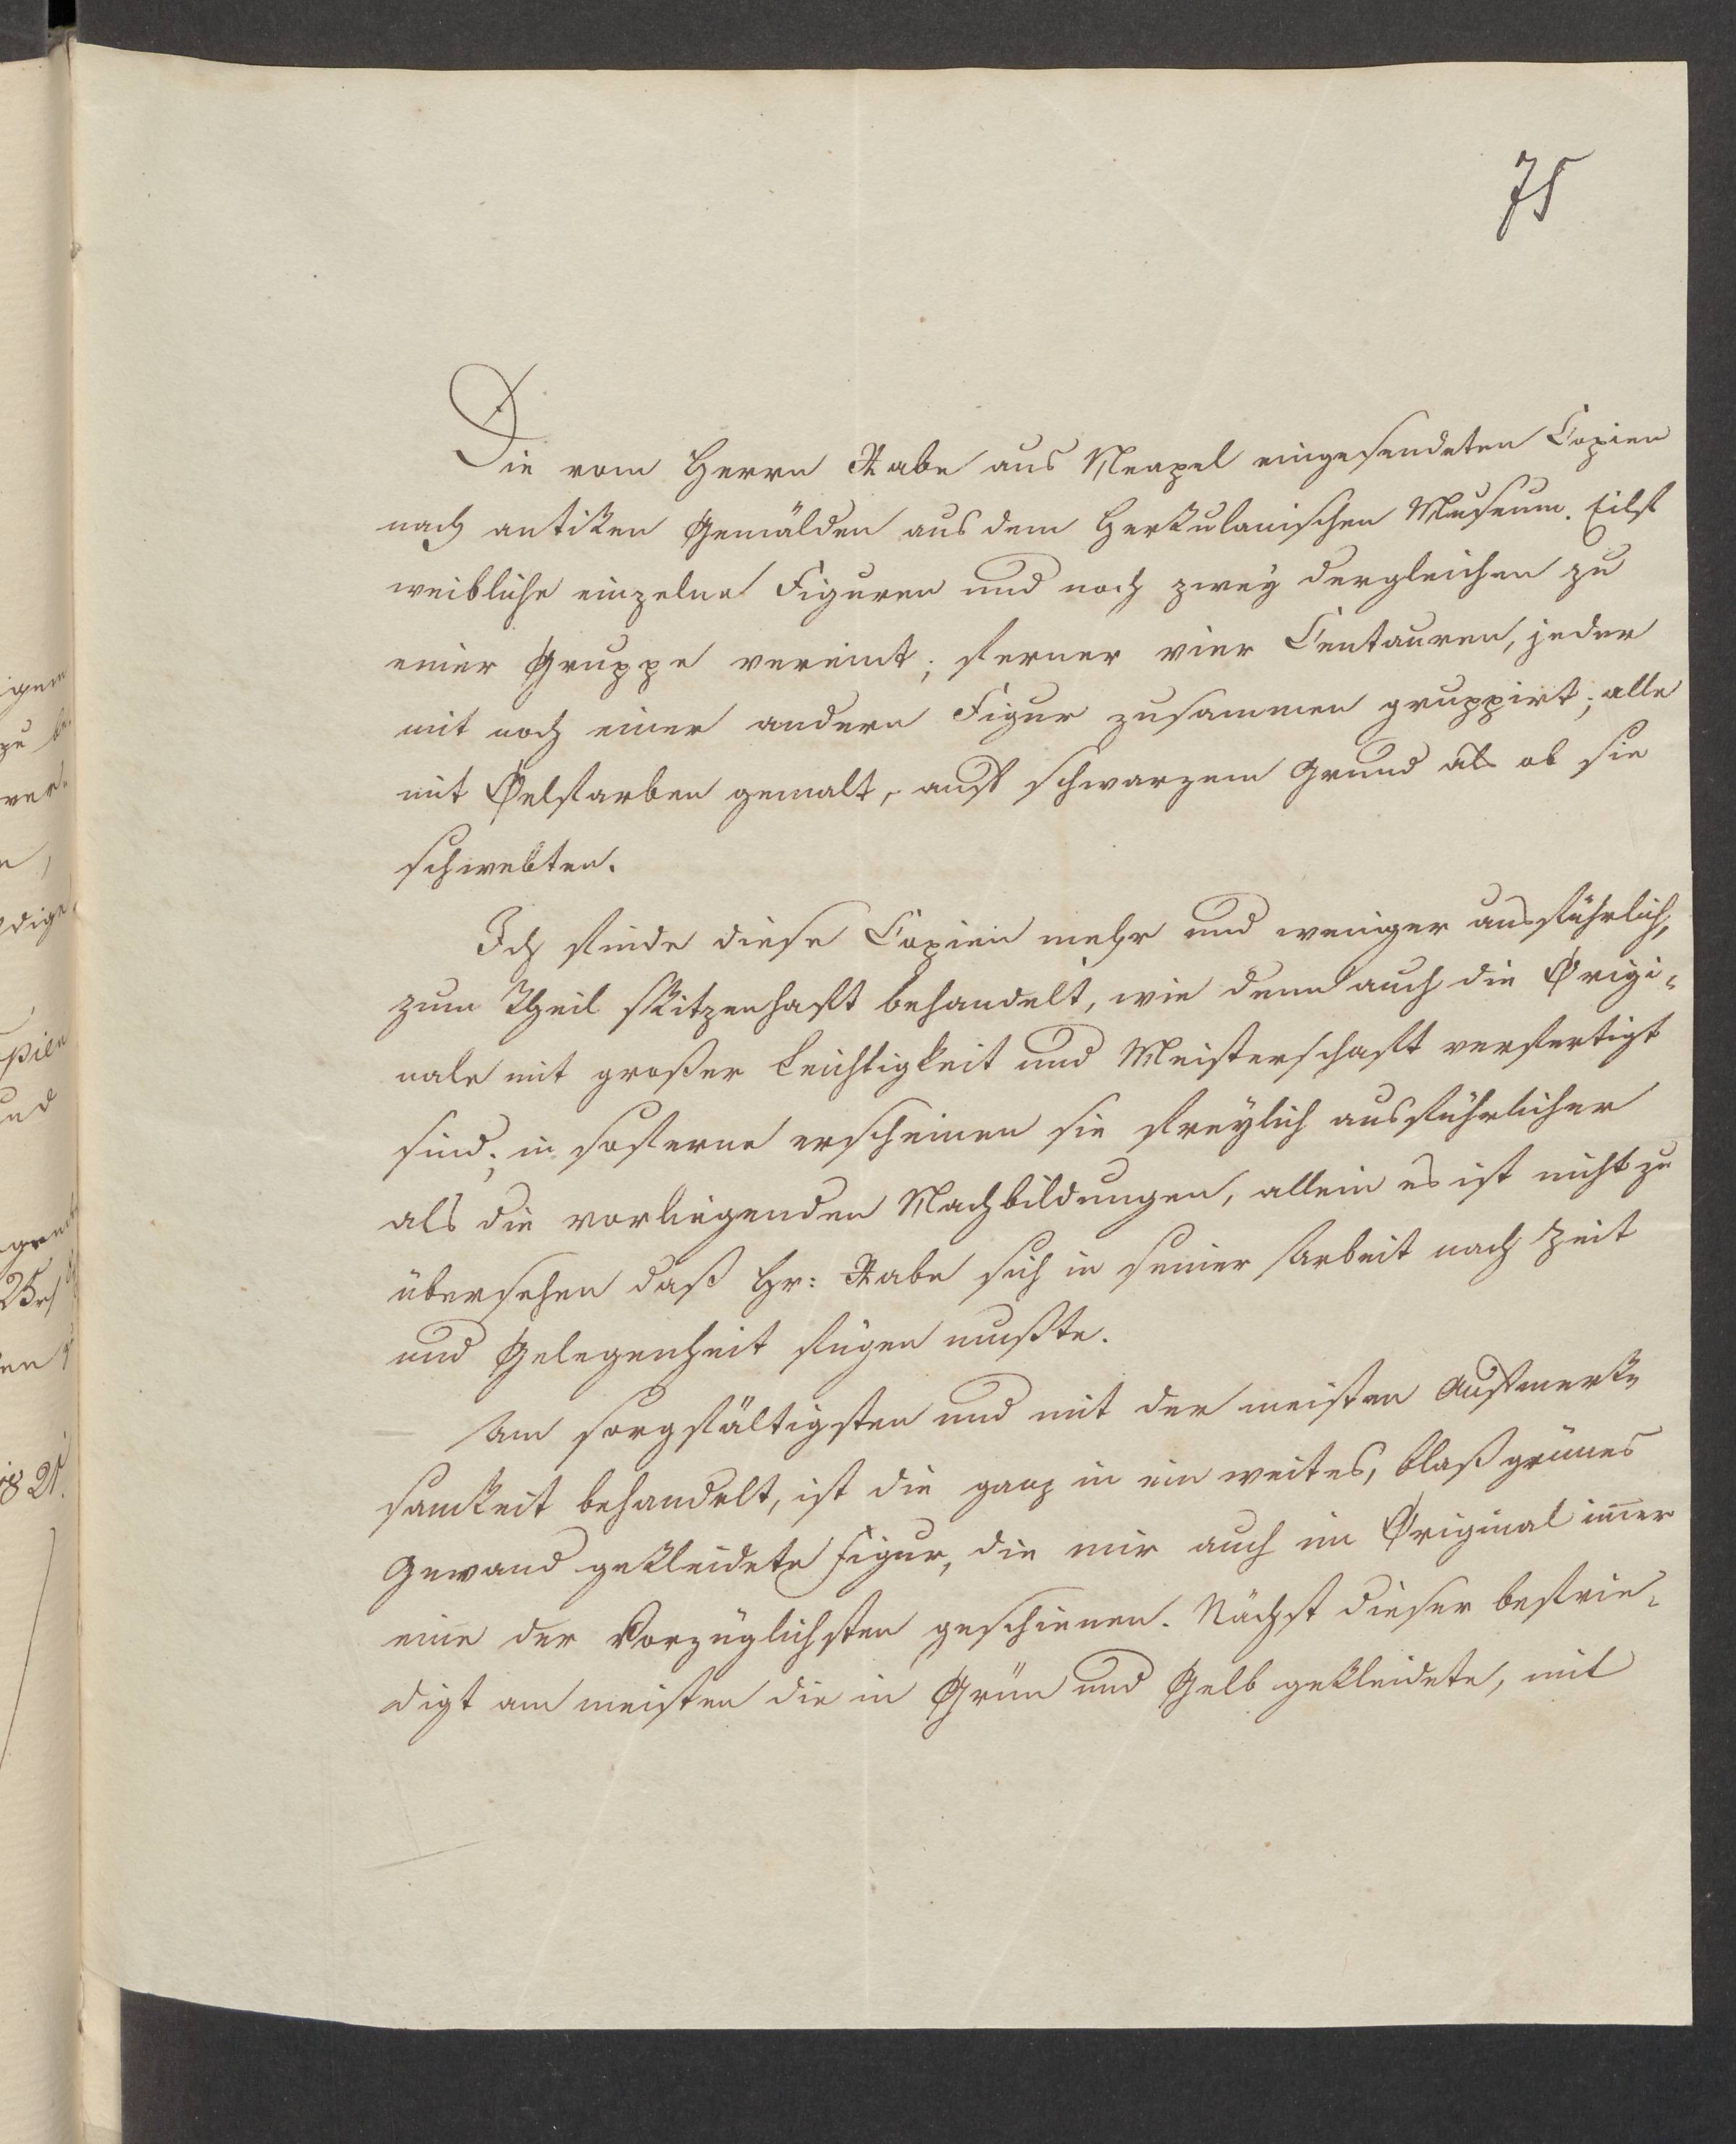 75
Die vom Herrn Rabe aus Neapel eingesendeten Copien
nach antiken Gemälden aus dem Herkulanischen Museum. Eilf
weibliche einzelne Figuren und noch zwey dergleichen zu
einer Gruppe vereint; ferner vier Centauren, jeder
mit noch einer andern Figur zusammen gruppirt; alle
mit Oelfarben gemalt, auf schwarzem Grund als ob sie
schwebten.
Ich finde diese Copien mehr und weniger ausführlich,
zum Theil skitzenhaft behandelt, wie denn auch die Origi-
nale mit großer Leichtigkeit und Meisterschaft verfertigt
sind; in soferne erscheinen sie freylich ausführlicher
als die vorliegenden Nachbildungen, allein es ist nicht zu
übersehen daß Hr: Rabe sich in seiner Arbeit nach Zeit
und Gelegenheit fügen mußte.
Am sorgfältigsten und mit der meisten Aufmerk-
samkeit behandelt, ist die ganz in ein weites, blaßgrünes
Gewand gekleidete Figur, die mir auch im Original im̄er
eine der Vorzüglichsten geschienen. Nächst dieser befrie-
digt am meisten die in Grün und Gelb gekleidete, mit
igen
zu be-
ver-
dige
pien
und
182